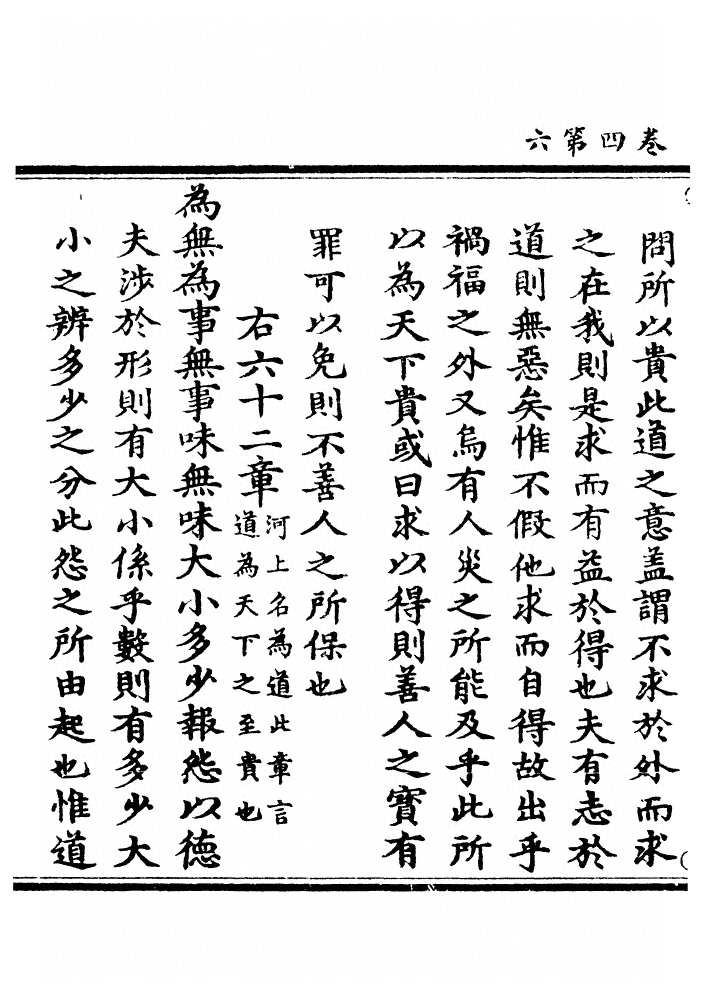 卷四第六
問所以貴此道之意盖謂不求於外而求
之在我則是求而有益於得也夫有志於
道則無惡矣惟不假他求而自得故出乎
禍福之外又烏有人災之所能及乎此所
以為天下貴或曰求以得則善人之寳有
罪可以免則不善人之所保也
右六十二章
河上名為道此章言
道為天下之至貴也
為無為事無事味無味大小多少報怨以德
夫涉於形則有大小係乎數則有多少大
小之辨多少之分此怨之所由起也惟道